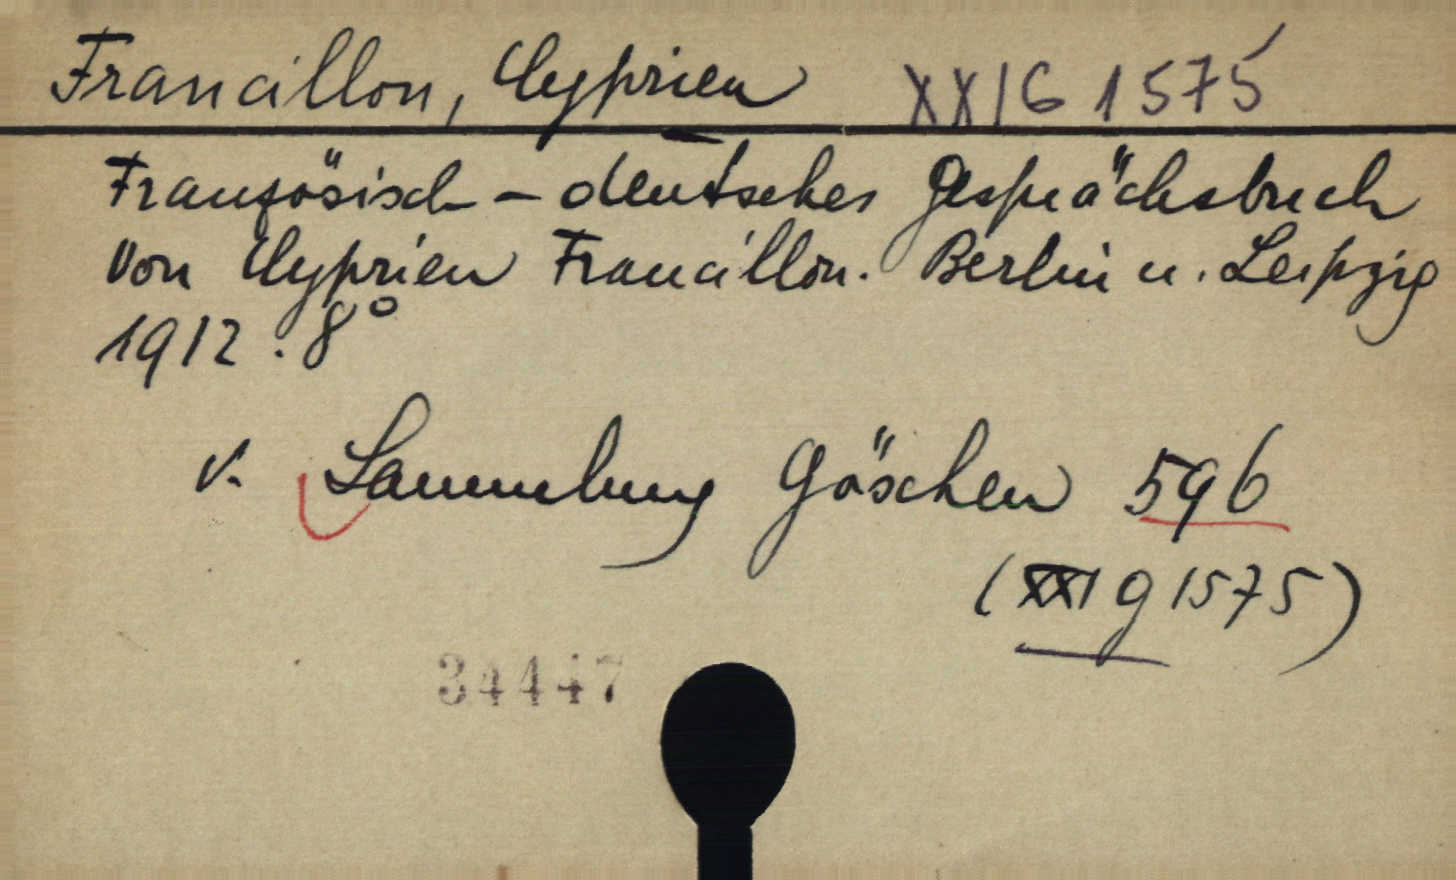 Francillon, Cyprien XXI G 1575
Französisch-deutsches Gesprächsbuch
von Cyprien Francillon. Berlin u. Leipzig
1912. 8°
v. Sammlung Göschen 596
(XXI g 1575)
34447